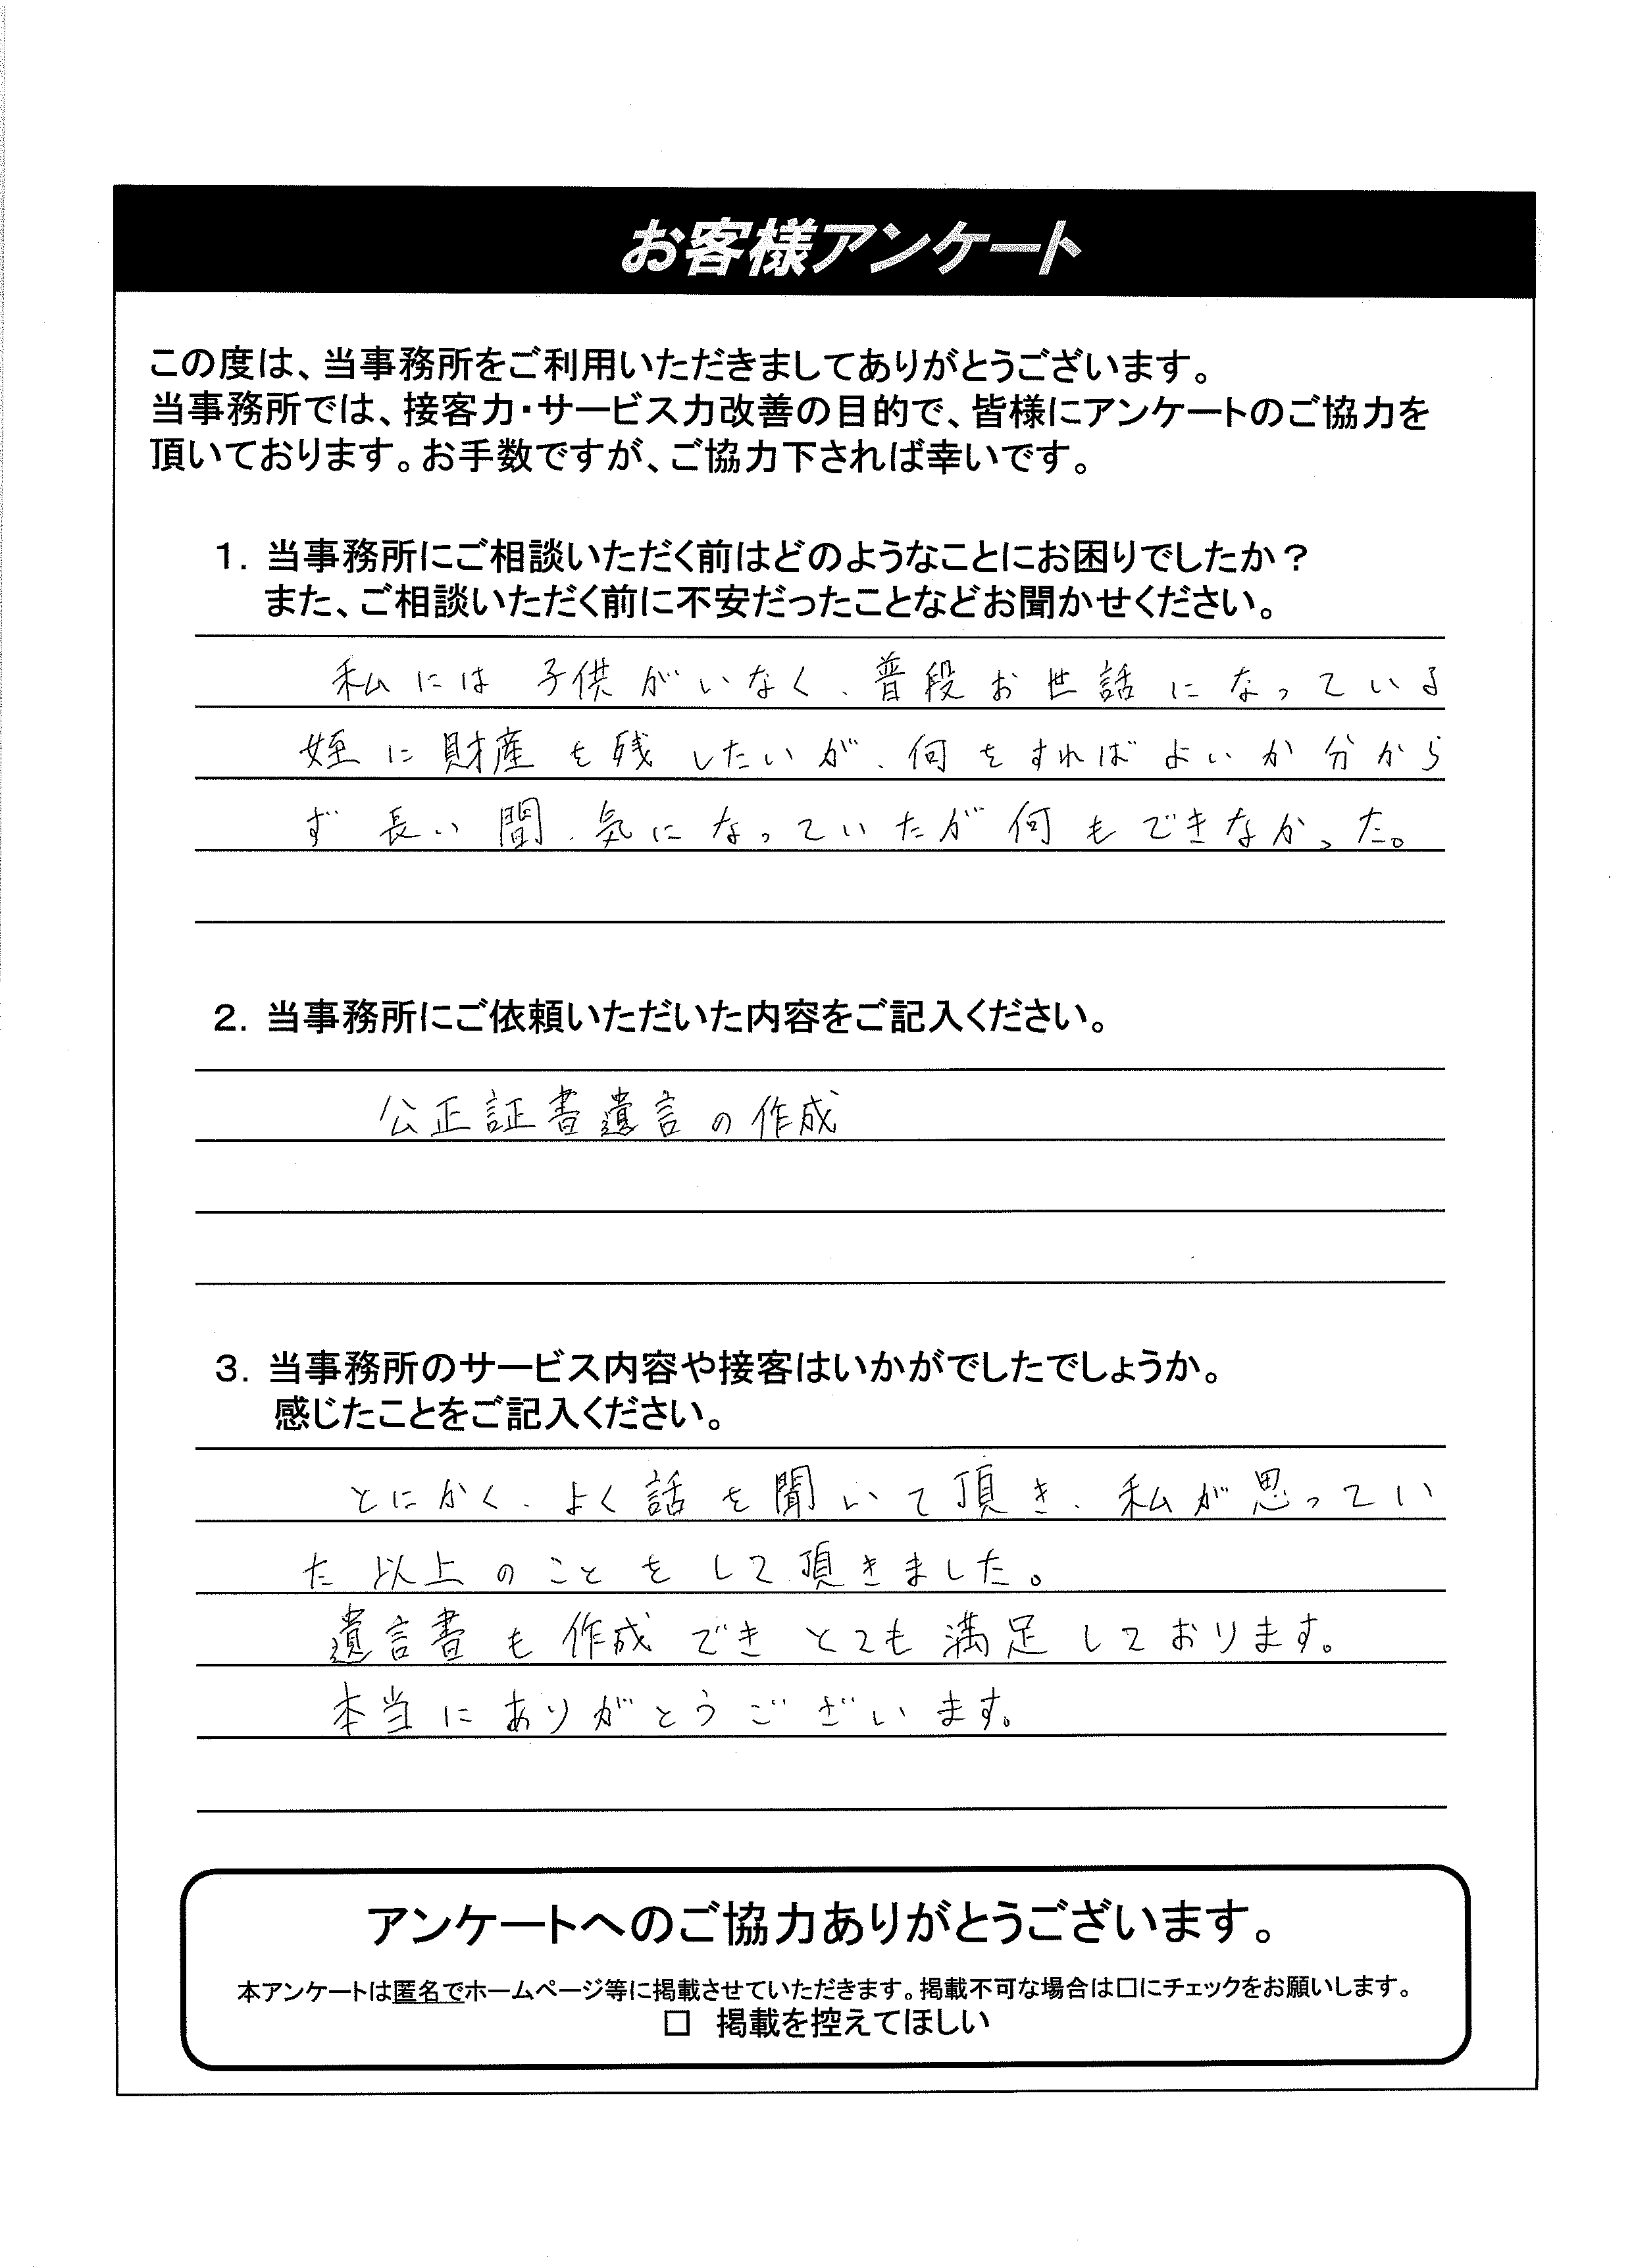 お客様アンケート
この度は、当事務所をご利用いただきましてありがとうございます。
当事務所では、接客力・サービス力改善の目的で、皆様にアンケートのご協力を
頂いております。お手数ですが、ご協力下されば幸いです。
1. 当事務所にご相談いただく前はどのようなことにお困りでしたか？
また、ご相談いただく前に不安だったことなどお聞かせください。
私には子供がいなく、普段お世話になっている
姪に財産を残したいが、何をすればよいか分から
ず長い間、気になっていたが何もできなかった。
2. 当事務所にご依頼いただいた内容をご記入ください。
公正証書遺言の作成
3. 当事務所のサービス内容や接客はいかがでしたでしょうか。
感じたことをご記入ください。
とにかく、よく話を聞いて頂き、私が思ってい
た以上のことをして頂きました。
遺言書も作成できとても満足しております。
本当にありがとうございます。
アンケートへのご協力ありがとうございます。
本アンケートは匿名でホームページ等に掲載させていただきます。掲載不可な場合は□にチェックをお願いします。
□ 掲載を控えてほしい